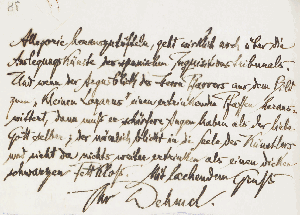 Allegorie herauszutüfteln, geht wirklich noch über die
Auslegungskünste des spanischen Inquisitionstribunals.
Und wenn der Argusblick des Herrn Pfarrers aus dem Bild
zum "Kleinen einen ertrinkenden Pfaffen heraus-
wittert, dann muß er schärfere Augen haben als der liebe
Gott selber; der nämlich blickt in die Seele des Künstlers
und sieht da nichts weiter ertrinken als einen dicken
schwarzen Fettkloß. Mit lachendem Gruß
Ihr Dehmel.